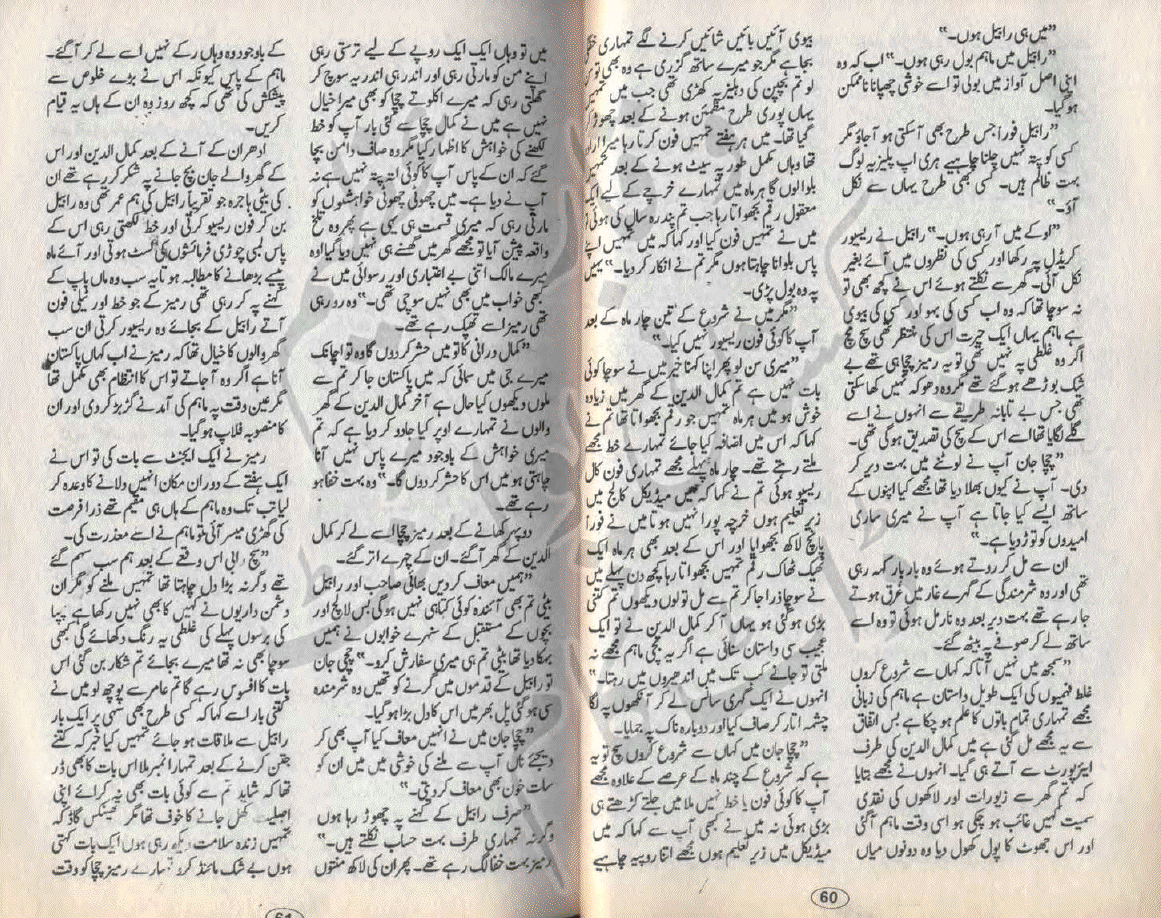 ”میں ہی رابیل ہوں۔“
”رابیل میں ماہم بول رہی ہوں۔“ اب کہ وہ
اپنی اصل آواز میں بولی تو اسے خوشی چھپانا ناممکن
ہو گیا۔
”رابیل فوراً جس طرح بھی آ سکتی ہو آ جاؤ مگر
کسی کو پتہ نہیں چلنا چاہیے ہری اپ پلیز یہ لوگ
بہت ظالم ہیں۔ کسی بھی طرح یہاں سے نکل
آؤ۔“
”اوکے میں آ رہی ہوں۔“ رابیل نے ریسیور
کریڈل پہ رکھا اور کسی کی نظروں میں آئے بغیر
نکل آئی۔ گھر سے نکلتے ہوئے اس نے کچھ بھی تو
نہ سوچا تھا کہ وہ اب کسی کی بہو اور کسی کی بیوی
ہے ماہم یہاں ایک حیرت اس کی منتظر تھی سچ مچ
اگر وہ غلطی پہ نہیں تھی تو یہ رمیز چچا ہی تھے بے
شک بوڑھے ہو گئے تھے مگر وہ دھوکہ نہیں کھا سکتی
تھی جس بے تابانہ طریقے سے انہوں نے اسے
گلے لگایا تھا اسے اس کے سچ کی تصدیق ہو گی تھی۔
”چچا جان آپ نے لوٹنے میں بہت دیر کر
دی۔ آپ نے کیوں بھلا دیا تھا مجھے کیا اپنوں کے
ساتھ ایسے کیا جاتا ہے آپ نے میری ساری
امیدوں کو توڑ دیا ہے۔“
ان سے مل کر روتے ہوئے وہ بار بار کہہ رہی
تھی اور وہ شرمندگی کے گہرے غار میں غرق ہوتے
جا رہے تھے بہت دیر بعد وہ نارمل ہوئی تو وہ اسے
ساتھ لے کر صوفے پہ بیٹھ گئے۔
”سمجھ میں نہیں آتا کہ کہاں سے شروع کروں
غلط فہمیوں کی ایک طویل داستان ہے ماہم کی زبانی
مجھے تمہاری تمام باتوں کا علم ہو چکا ہے بس اتفاق
سے یہ مجھے مل گئی ہے میں کمال الدین کی طرف
ایئرپورٹ سے آتے ہی گیا۔ انہوں نے مجھے بتایا
کہ تم گھر سے زیورات اور لاکھوں کی نقدی
سمیت کہیں غائب ہو چکی ہو اسی وقت ماہم آ گئی
اور اس جھوٹ کا پول کھول دیا وہ دونوں میاں
بیوی آئیں بائیں شائیں کرنے لگے تمہاری
بجا ہے مگر جو میرے ساتھ گزری ہے وہ بھی تو
لو تم بچپن کی دہلیز پہ کھڑی تھی جب میں تمہیں
یہاں پوری طرح مطمئن ہونے کے بعد چھوڑ
گیا تھا۔ میں ہر ہفتے تمہیں فون کرتا رہا میرا ارادہ
تھا وہاں مکمل طور پہ سیٹ ہونے کے بعد تمہیں
بلوا لوں گا ہر ماہ میں تمہارے خرچے کے لیے ایک
معقول رقم بھجواتا رہا جب تم پندرہ سال کی ہوئی تو
میں نے تمہیں فون کیا اور کہا کہ میں تمہیں اپنے
پاس بلوانا چاہتا ہوں مگر تم نے انکار کر دیا۔“ یہیں
پہ وہ بول پڑی۔
”مگر میں نے شروع کے تین چار ماہ کے بعد
آپ کا کوئی فون ریسیور نہیں کیا۔“
”میری سن لو پھر اپنا کہنا خیر میں نے سوچا کوئی
بات نہیں ہے تم کمال الدین کے گھر میں زیادہ
خوش ہو میں ہر ماہ تمہیں جو رقم بھجواتا تھا تم نے
کہا کہ اس میں اضافہ کیا جائے تمہارے خط مجھے
ملتے رہتے تھے۔ چار ماہ پہلے مجھے تمہاری فون کال
ریسیو ہوئی تم نے کہا کہ میں میڈیکل کالج میں
زیر تعلیم ہوں خرچہ پورا نہیں ہوتا میں نے فوراً
پانچ لاکھ بھجوایا اور اس کے بعد بھی ہر ماہ ایک
ٹھیک ٹھاک رقم تمہیں بھجواتا رہا کچھ دن پہلے میں
نے سوچا ذرا جا کر تم سے مل تو لوں دیکھوں تم کتنی
بڑی ہو گئی ہو یہاں آ کر کمال الدین نے تو ایک
عجیب سی داستان سنائی ہے اگر یہ بچی ماہم مجھے نہ
ملتی تو جانے کب تک میں اندھیروں میں رہتا۔“
انہوں نے ایک گہری سانس لے کر آنکھوں پہ لگا
چشمہ اتار کر صاف کیا اور دوبارہ ناک پہ جمایا۔
”چچا جان میں کہاں سے شروع کروں سچ تو یہ
ہے کہ شروع کے چند ماہ کے عرصے کے علاوہ مجھے
آپ کا کوئی فون یا خط نہیں ملا میں جلتے کڑھتے ہی
بڑی ہوئی نہ میں نے کبھی آپ سے کہا کہ میں
میڈیکل میں زیر تعلیم ہوں مجھے اتنا روپیہ چاہیے
60
میں تو وہاں ایک ایک روپے کے لیے ترستی رہی
اپنے من کو مارتی رہی اور اندر ہی اندر یہ سوچ کر
گھلتی رہی کہ میرے اکلوتے چچا کو بھی میرا خیال
نہیں ہے میں نے کمال چچا سے کئی بار آپ کو خط
لکھنے کی خواہش کا اظہار کیا مگر وہ صاف دامن بچا
گئے کہ ان کے پاس آپ کا کوئی اتہ پتہ نہیں ہے نہ
آپ نے دیا ہے۔ میں چھوٹی چھوٹی خواہشوں کو
مارتی رہی کہ میری قسمت ہی یہی ہے پھر وہ تلخ
واقعہ پیش آیا تو مجھے گھر میں گھسنے ہی نہیں دیا گیا اوہ
میرے مالک اتنی بے اعتباری اور رسوائی میں نے
کبھی خواب میں بھی نہیں سوچی تھی۔“ وہ رو رہی
تھی رمیز اسے تھپک رہے تھے۔
”کمال درانی کا تو میں حشر کر دوں گا وہ تو اچانک
میرے جی میں سمائی کہ میں پاکستان جا کر تم سے
ملوں دیکھوں کیا حال ہے آخر کمال الدین کے گھر
والوں نے تمہارے اوپر کیا جادو کر دیا ہے کہ تم
میری خواہش کے باوجود میرے پاس نہیں آنا
چاہتی ہو میں اس کا حشر کر دوں گا۔“ وہ بہت خفا ہو
رہے تھے۔
دوپہر کھانے کے بعد رمیز چچا اسے لے کر کمال
الدین کے گھر آ گئے۔ ان کے چہرے اتر گئے۔
”ہمیں معاف کر دیں بھائی صاحب اور رابیل
بیٹی تم بھی آئندہ کوئی کتاہی نہیں ہو گی بس لالچ اور
بچوں کے مستقبل کے سنہرے خوابوں نے ہمیں
بہکا دیا تھا بیٹی تم ہی میری سفارش کرو۔“ چچی جان
تو رابیل کے قدموں میں گرنے کو تھیں وہ شرمندہ
سی ہو گئی پل بھر میں اس کا دل بڑا ہو گیا۔
”چچا جان میں نے انہیں معاف کیا آپ بھی کر
دیجئے ناں آپ سے ملنے کی خوشی میں میں ان کو
سات خون بھی معاف کر دیتی۔“
”صرف رابیل کے کہنے پہ چھوڑ رہا ہوں
ورنہ تمہاری طرف بہت حساب نکلتے ہیں۔“
رمیز بہت خفا لگ رہے تھے۔ پھر ان کی لاکھ منتوں
کے باوجود وہ وہاں رکے نہیں اسے لے کر آ گئے۔
ماہم کے پاس کیونکہ اس نے بڑے خلوص سے
پیشکش کی تھی کہ کچھ روز وہ ان کے ہاں یہ قیام
کریں۔
ادھر ان کے آنے کے بعد کمال الدین اور اس
کے گھر والے جان بچ جانے پہ شکر کر رہے تھے ان
کی بیٹی ہاجرہ جو تقریباً رابیل کی ہم عمر تھی وہ رابیل
بن کر فون ریسیو کرتی اور خط لکھتی رہی اس کے
پاس لمبی چوڑی فرمائشوں کی لسٹ ہوتی اور آئے ماہ
پیسے بڑھانے کا مطالبہ ہوتا یہ سب وہ ماں باپ کے
کہنے پہ کر رہی تھی رمیز کے جو خط اور ٹیلی فون
آتے رابیل کے بجائے وہ ریسیور کرتی ان سب
گھر والوں کا خیال تھا کہ رمیز نے اب کہاں پاکستان
آنا ہے اگر وہ آ جاتے تو اس کا انتظام بھی مکمل تھا
مگر عین وقت پہ ماہم کی آمد نے گڑبڑ کر دی اور ان
کا منصوبہ فلاپ ہو گیا۔
رمیز نے ایک ایجنٹ سے بات کی تو اس نے
ایک ہفتے کے دوران مکان انہیں دلانے کا وعدہ کر
لیا تب تک وہ ماہم کے ہاں ہی مقیم تھے ذرا فرصت
کی گھڑی میسر آئی تو ماہم نے اسے معذرت کی۔
”سچ رابی اس وقعے کے بعد ہم سب سہم گئے
تھے وگرنہ بڑا دل چاہتا تھا تمہیں ملنے کو مگر ان
دشمن داریوں نے کہیں کا بھی نہیں رکھا ہے پپا
کی برسوں پہلے کی غلطی یہ رنگ دکھائے گی کبھی
سوچا بھی نہ تھا میرے بجائے تم شکار بن گئی اس
بات کا افسوس رہے گا تم عامر سے پوچھ لو میں نے
کتنی بار اسے کہا کہ کسی طرح بھی سہی پر ایک بار
رابیل سے ملاقات ہو جائے تمہیں کیا خبر کہ کتنے
جتن کرنے کے بعد تمہارا نمبر ملا اس بات کا بھی ڈر
تھا کہ شاید تم سے کوئی بات بھی نہ کرائے اپنی
اصلیت کھل جانے کا خوف تھا مگر تھینکس گاڈ کہ
تمہیں زندہ سلامت دیکھ رہی ہوں ایک بات کہتی
ہوں بے شک مائنڈ کرو تمہارے رمیز چچا کو وقت
61